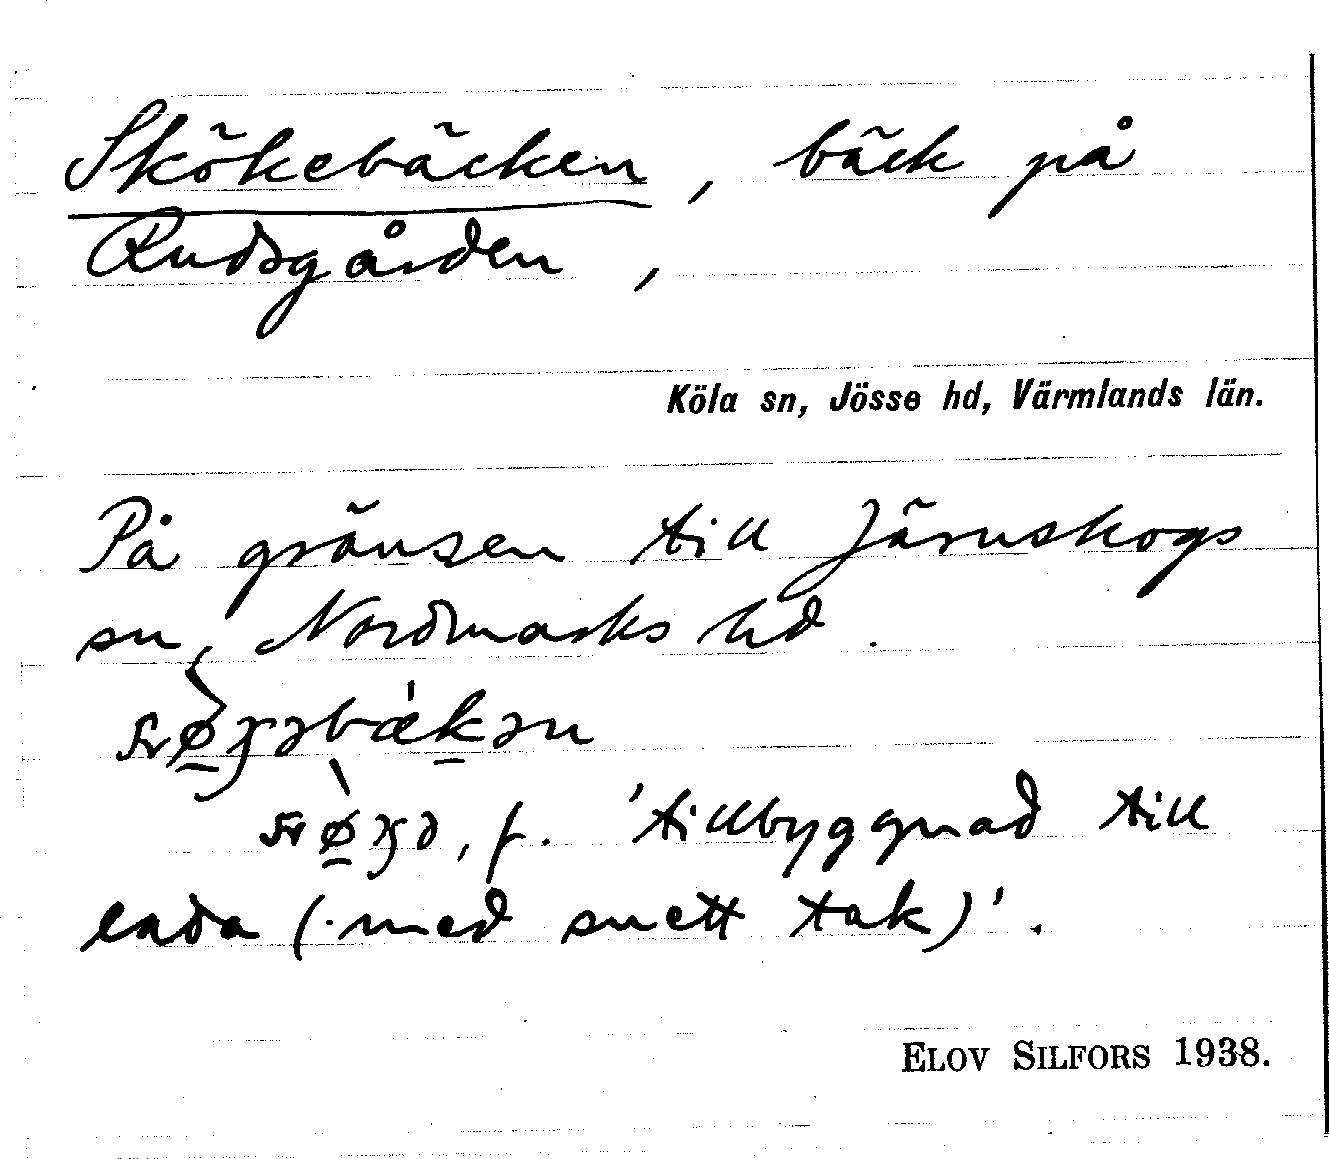 Skökebäcken, bäck på
Rudsgården,
Köla sn, Jösse hd, Värmlands län.
På gränsen till Järnskogs
sn, Nordmarks hd.
'tillbyggnad till
lada (med snett tak)'.
ELOV SILFORS 1938.